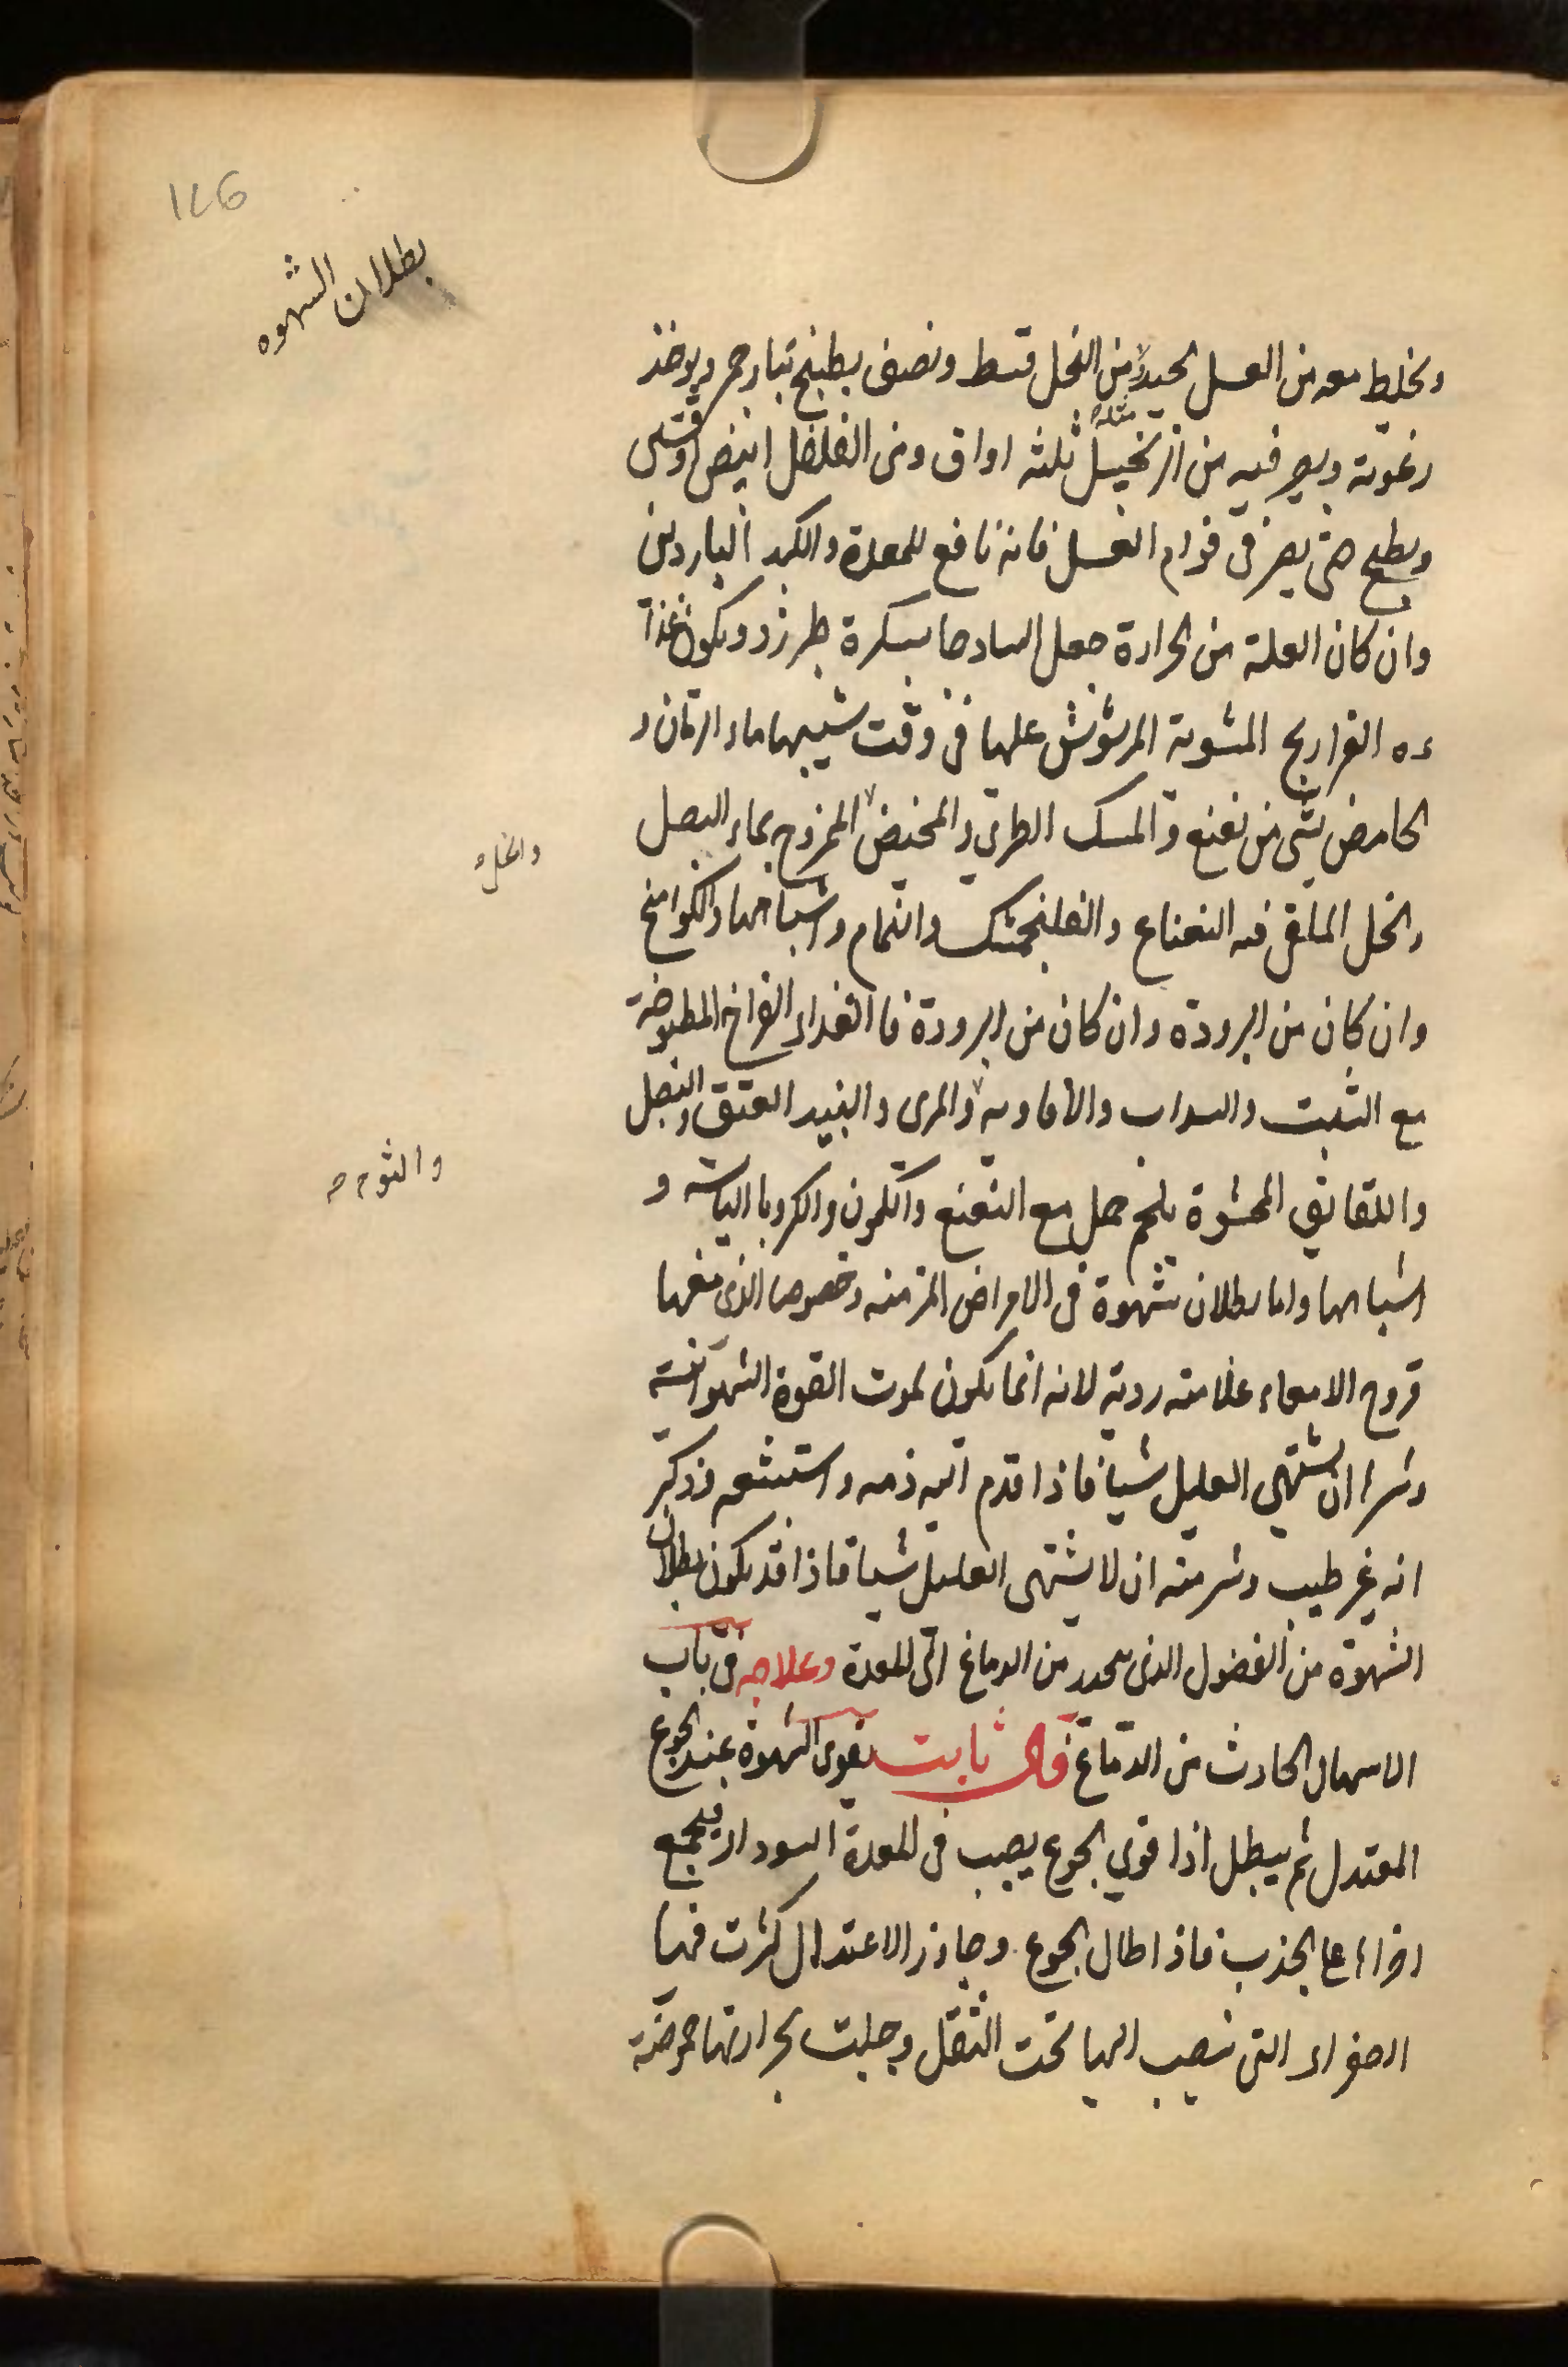 126
بطلان الشهوه
ويخلط معه من العسل الجيد مثله من الخل قسط ونصف يطبخ بنار جمر ويوخذ
رغوته ويصر فيه من الزنجبيل ثلثه اواق ومن الفلفل ابيض اوقيتى
ويطبخ حتى يصر فى قوام العسل فانه نافع للمعدة والكبد الباردين
وان كان العلة من الحرارة جعل الساد جا بسكرة طبرزد ويكون غذا
ءه الفراريج المشوية المرشوش عليها فى وقت شييها ماء الرمان و
الحامض بشى من نعنع والمسك الطرى والمخيض الممزوج بماء البصل
والخل
والخل الملقى فيه النعناع والفلنجمشك والنمام واشباهها والكوامخ
وان كان من البرودة وان كان من البرودة فا الغداء الفراخ المطبوخة
مع الشبت والسداب والافاويه والمرى والنبيد العتق والبصل
والثوم صح
واللقانق المحشوة بلحم حمل مع النعنع والكمون والكرويا اليابسه و
اشباهها واما بطلان شهوة فى الامراض المزمنه وخصوصا الذى معها
قروح الامعاء علامته رديه لانه انما يكون لموت القوة الشهوانية
وشرا ان يشتهى العليل شيا فاذا قدم اليه ذمه واستبشعه وذكر
انه غير طيب وشر منه ان لا يشتهى العليل شيا فاذا قد يكون بطلان
الشهوة من الفضول الذى ينحدر من الدماغ الى المعدة وعلاجه فى باب
الاسهال الحادث من الدماغ قال ثابت يقوى الشهوة عند الجوع
المعتدل ثم يبطل اذا قوى الجوع يصب فى المعدة السوداء فيجمع
اجزاءها الجذب فاذا طال الجوع وجاوز الاعتدال كثرت فيها
الصفراء التى ينصب اليها تحت الثقل وجلبت بحرارتها حموضة